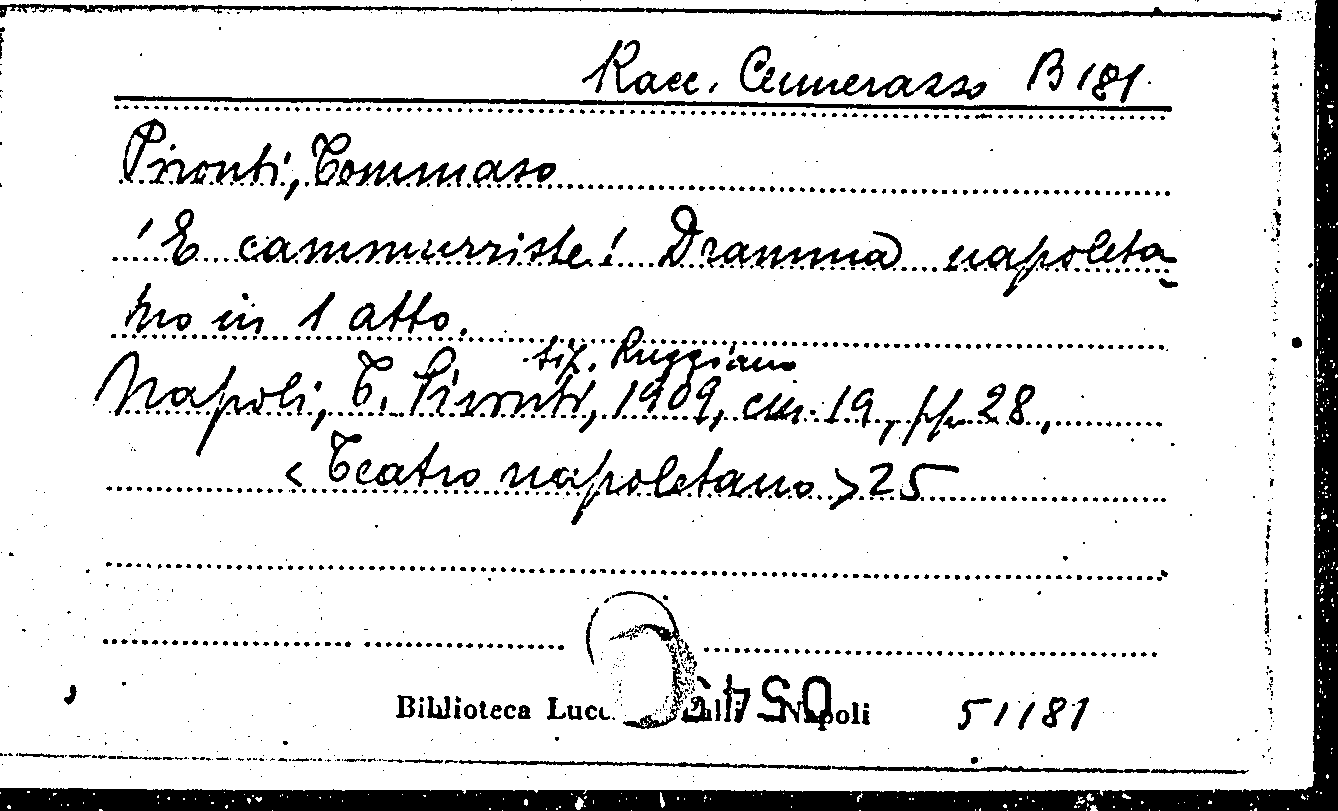 Racc. Cennerazzo B 181
Pironti, Tommaso
'E cammurriste! Dramma napoleta-
no in 1 atto.
tip. Ruggiano
Napoli, T. Pironti, 1909, cm. 19, pp. 28,
<Teatro napoletano> 25
Biblioteca Lucc Napoli 51181